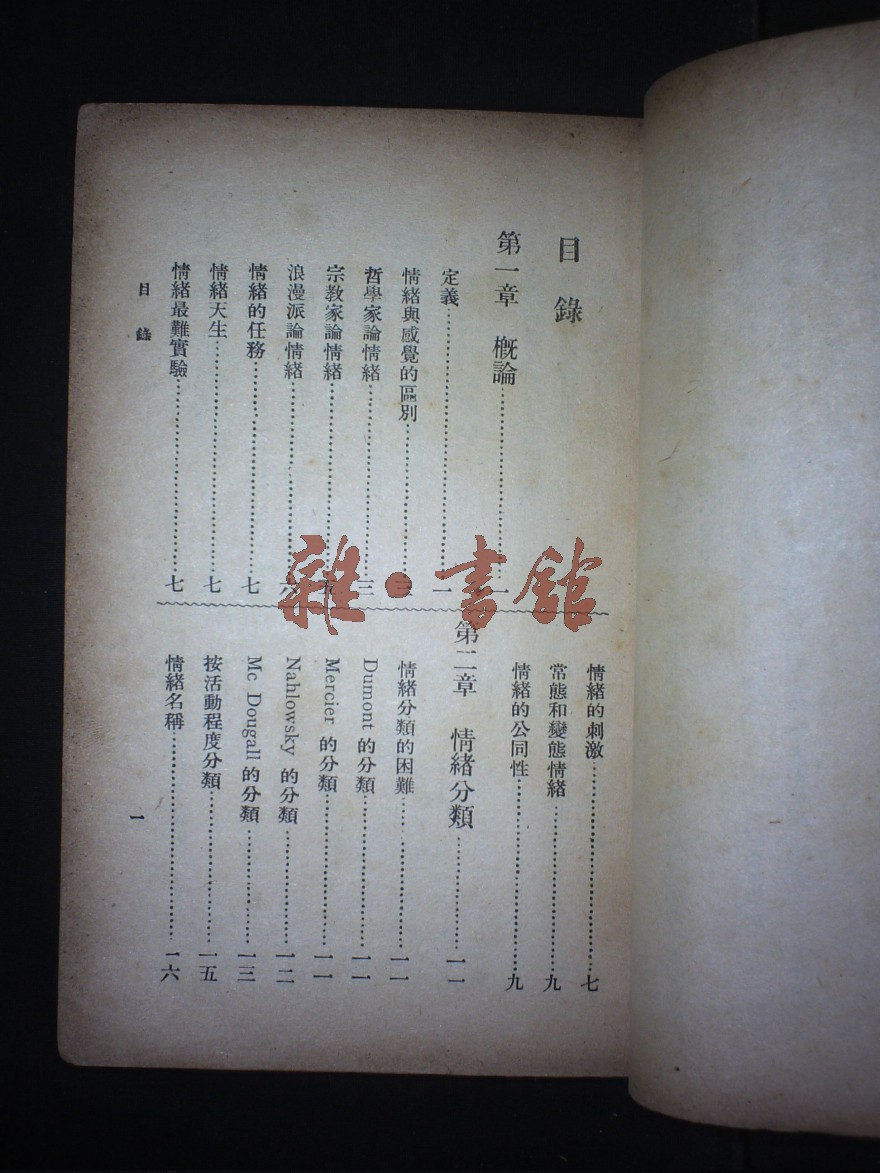 目錄
第一章　概論…………一
定義…………一
情緒與感覺的區別…………三
哲學家論情緒…………三
宗教家論情緒…………五
浪漫派論情緒…………六
情緒的任務…………七
情緒天生…………七
情緒最難實驗…………七
情緒的刺激…………七
常態和變態情緒…………九
情緒的公同性…………九
第二章　情緒分類…………一一
情緒分類的困難…………一一
Dumont 的分類…………一一
Mercier 的分類…………一一
Nahlowsky 的分類…………一二
Mc Dougall 的分類…………一三
按活動程度分類…………一五
情緒名稱…………一六
目錄
一
雜·書館